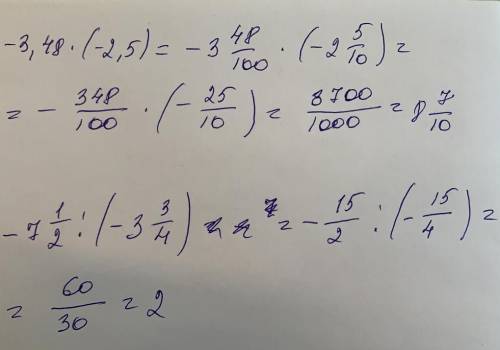 -3,48·(-2,5) = -3 48/100 · (-2 5/10) =
= - 348/100 · (- 25/10) = 8700/1000 = 8 7/10
-7 1/2 : (-3 3/4) = - 15/2 : (- 15/4) =
= 60/30 = 2